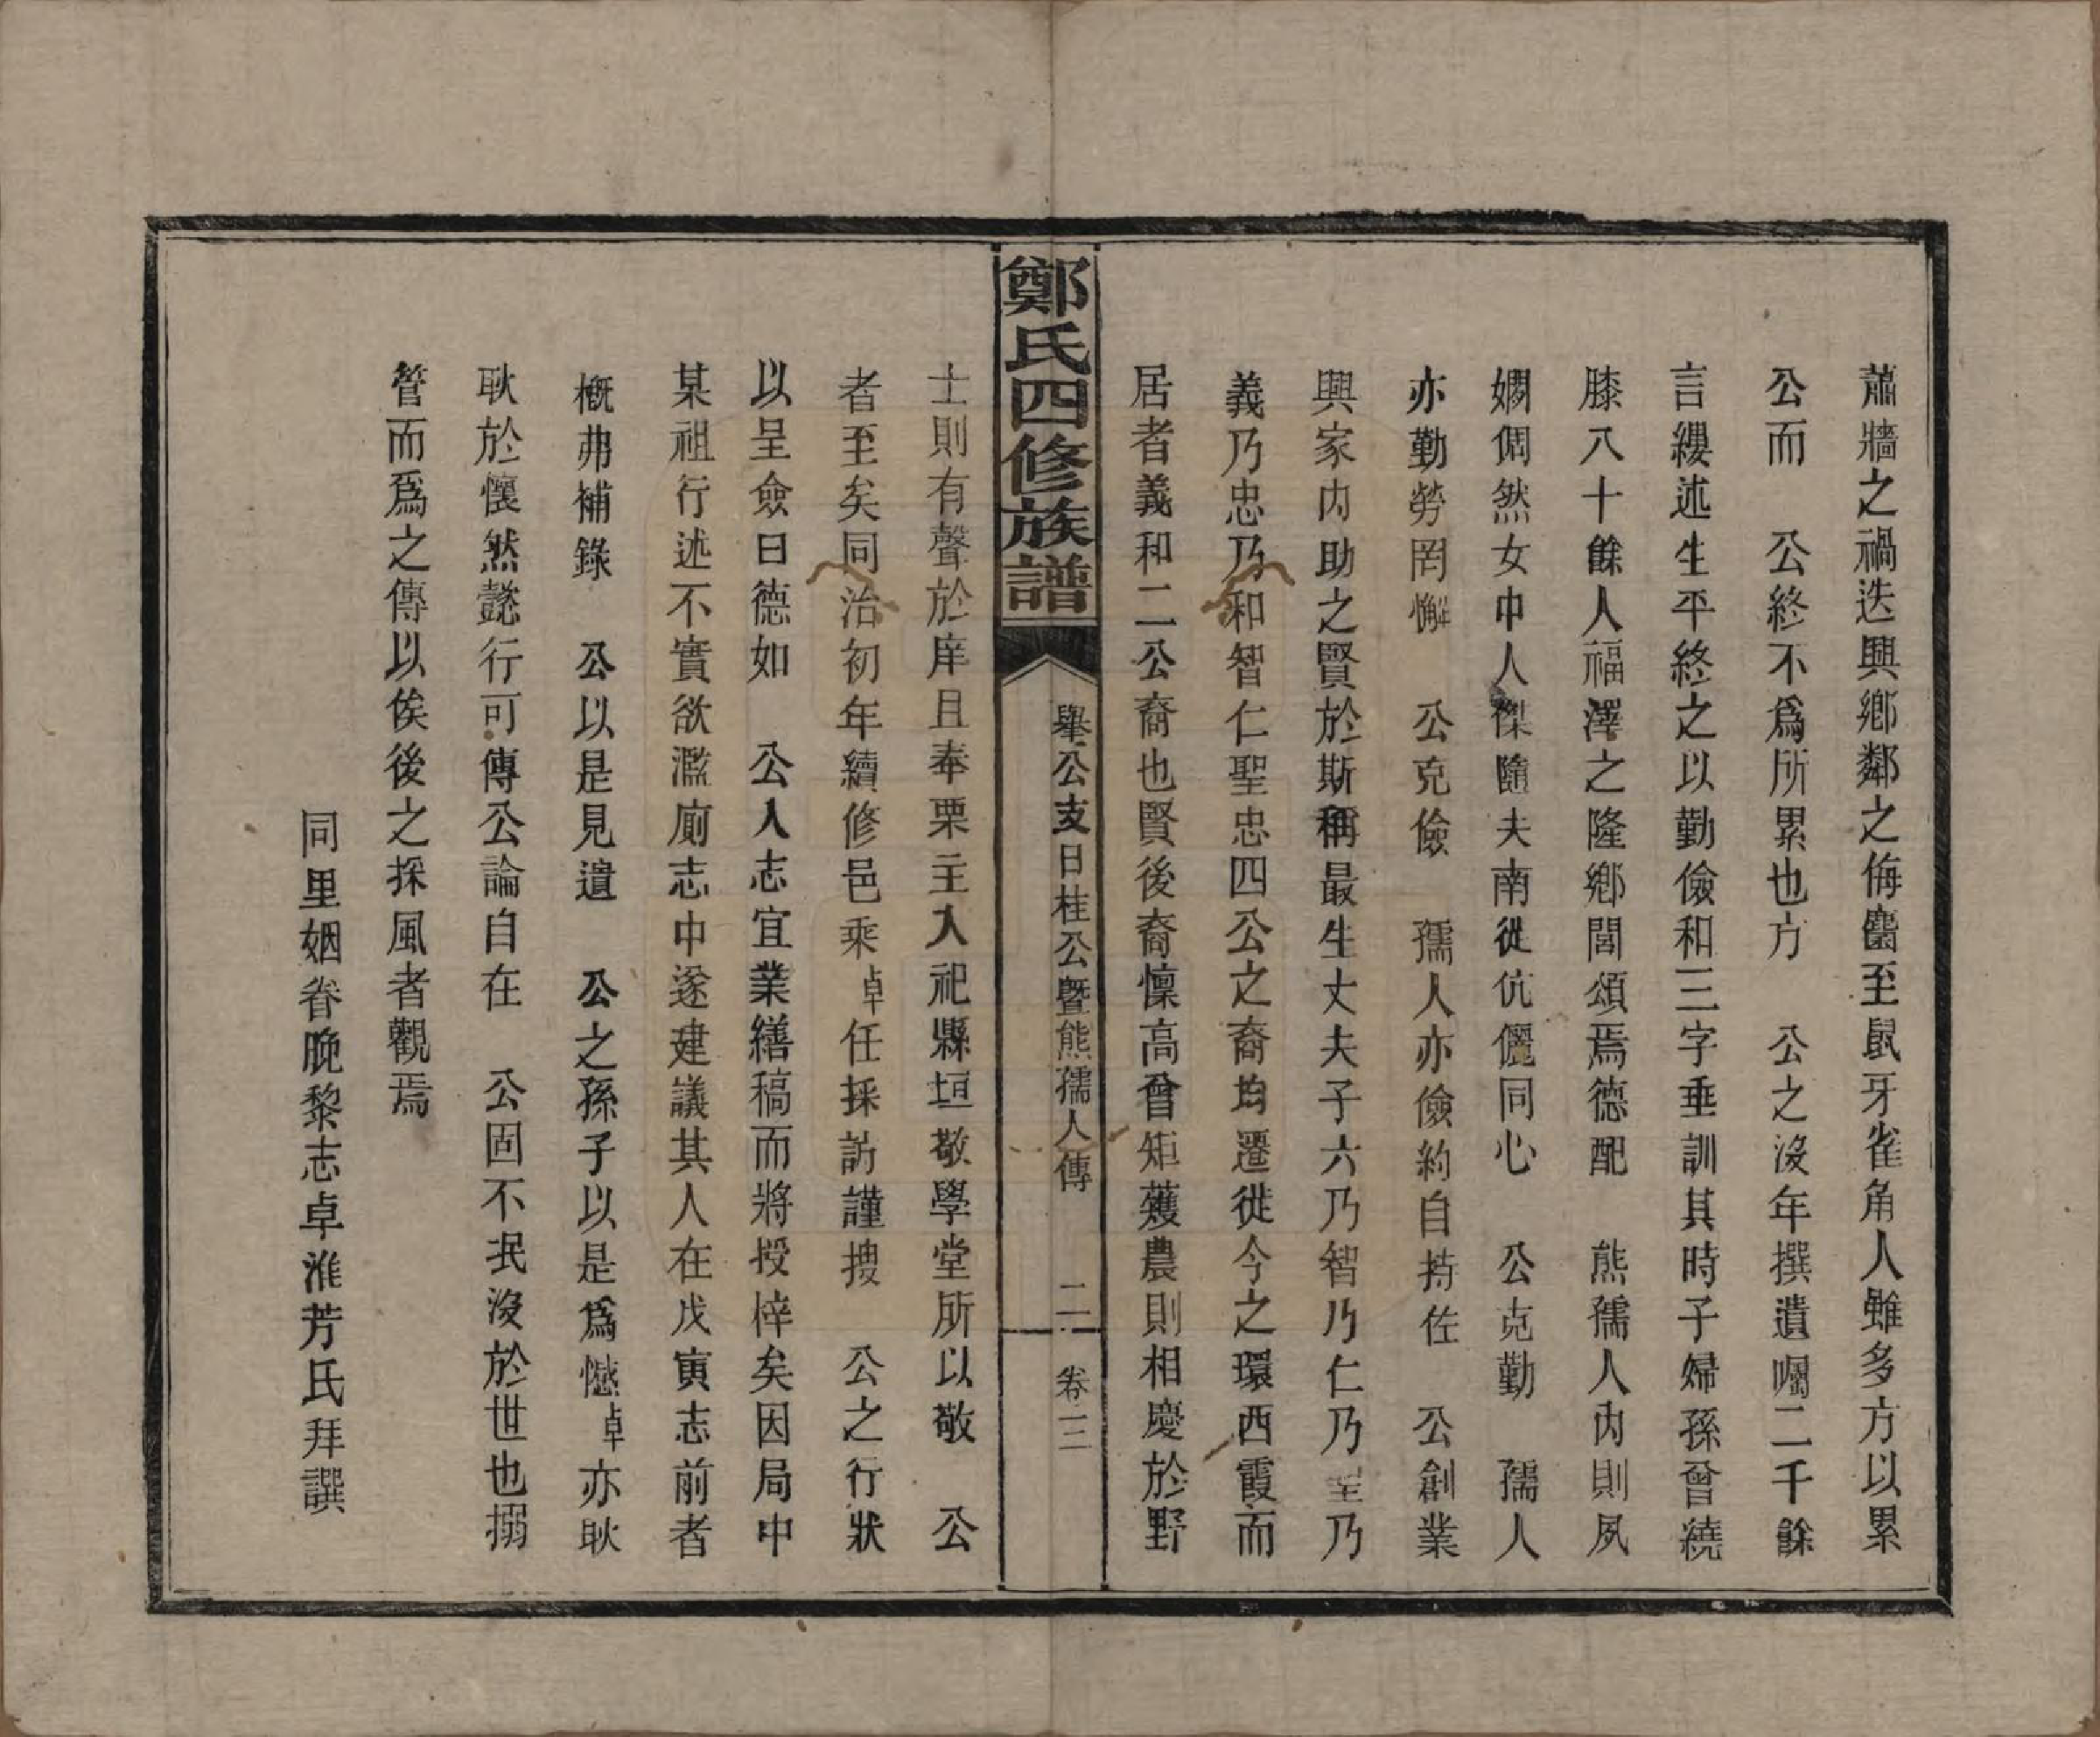 蕭牆之禍迭興鄉鄰之侮麕至鼠牙雀角人雖多方以累
公而　公終不爲所累也方　公之沒年撰遺囑二千餘
言縷述生平終之以勤儉和三字垂訓其時子婦孫曾繞
膝八十餘人福澤之隆鄉閭頌焉德配　熊孺人內則夙
嫻倜然女中人傑隨夫南徙伉儷同心　公克勤　孺人
亦勤勞罔懈　公克儉　孺人亦儉約自持佐　公創業
興家內助之賢於斯稱最生丈夫子六乃智乃仁乃聖乃
義乃忠乃和智仁聖忠四公之裔均遷徙今之環西霞而
居者義和二公裔也賢後裔懍高曾矩矱農則相慶於野
鄭氏四修族譜
舉公支日桂公曁熊孺人傳　二　卷三
士則有聲於庠且奉栗主入祀縣垣敬學堂所以敬　公
者至矣同治初年續修邑乘卓任採訪謹搜　公之行狀
以呈僉曰德如　公入志宜業繕稿而將授梓矣因局中
某祖行述不實欲濫廁志中遂建議其人在戊寅志前者
槪弗補錄　公以是見遺　公之孫子以是爲憾卓亦耿
耿於懷然懿行可傳公論自在　公固不泯沒於世也搦
管而爲之傳以俟後之採風者觀焉
同里姻眷晚黎志卓淮芳氏拜譔